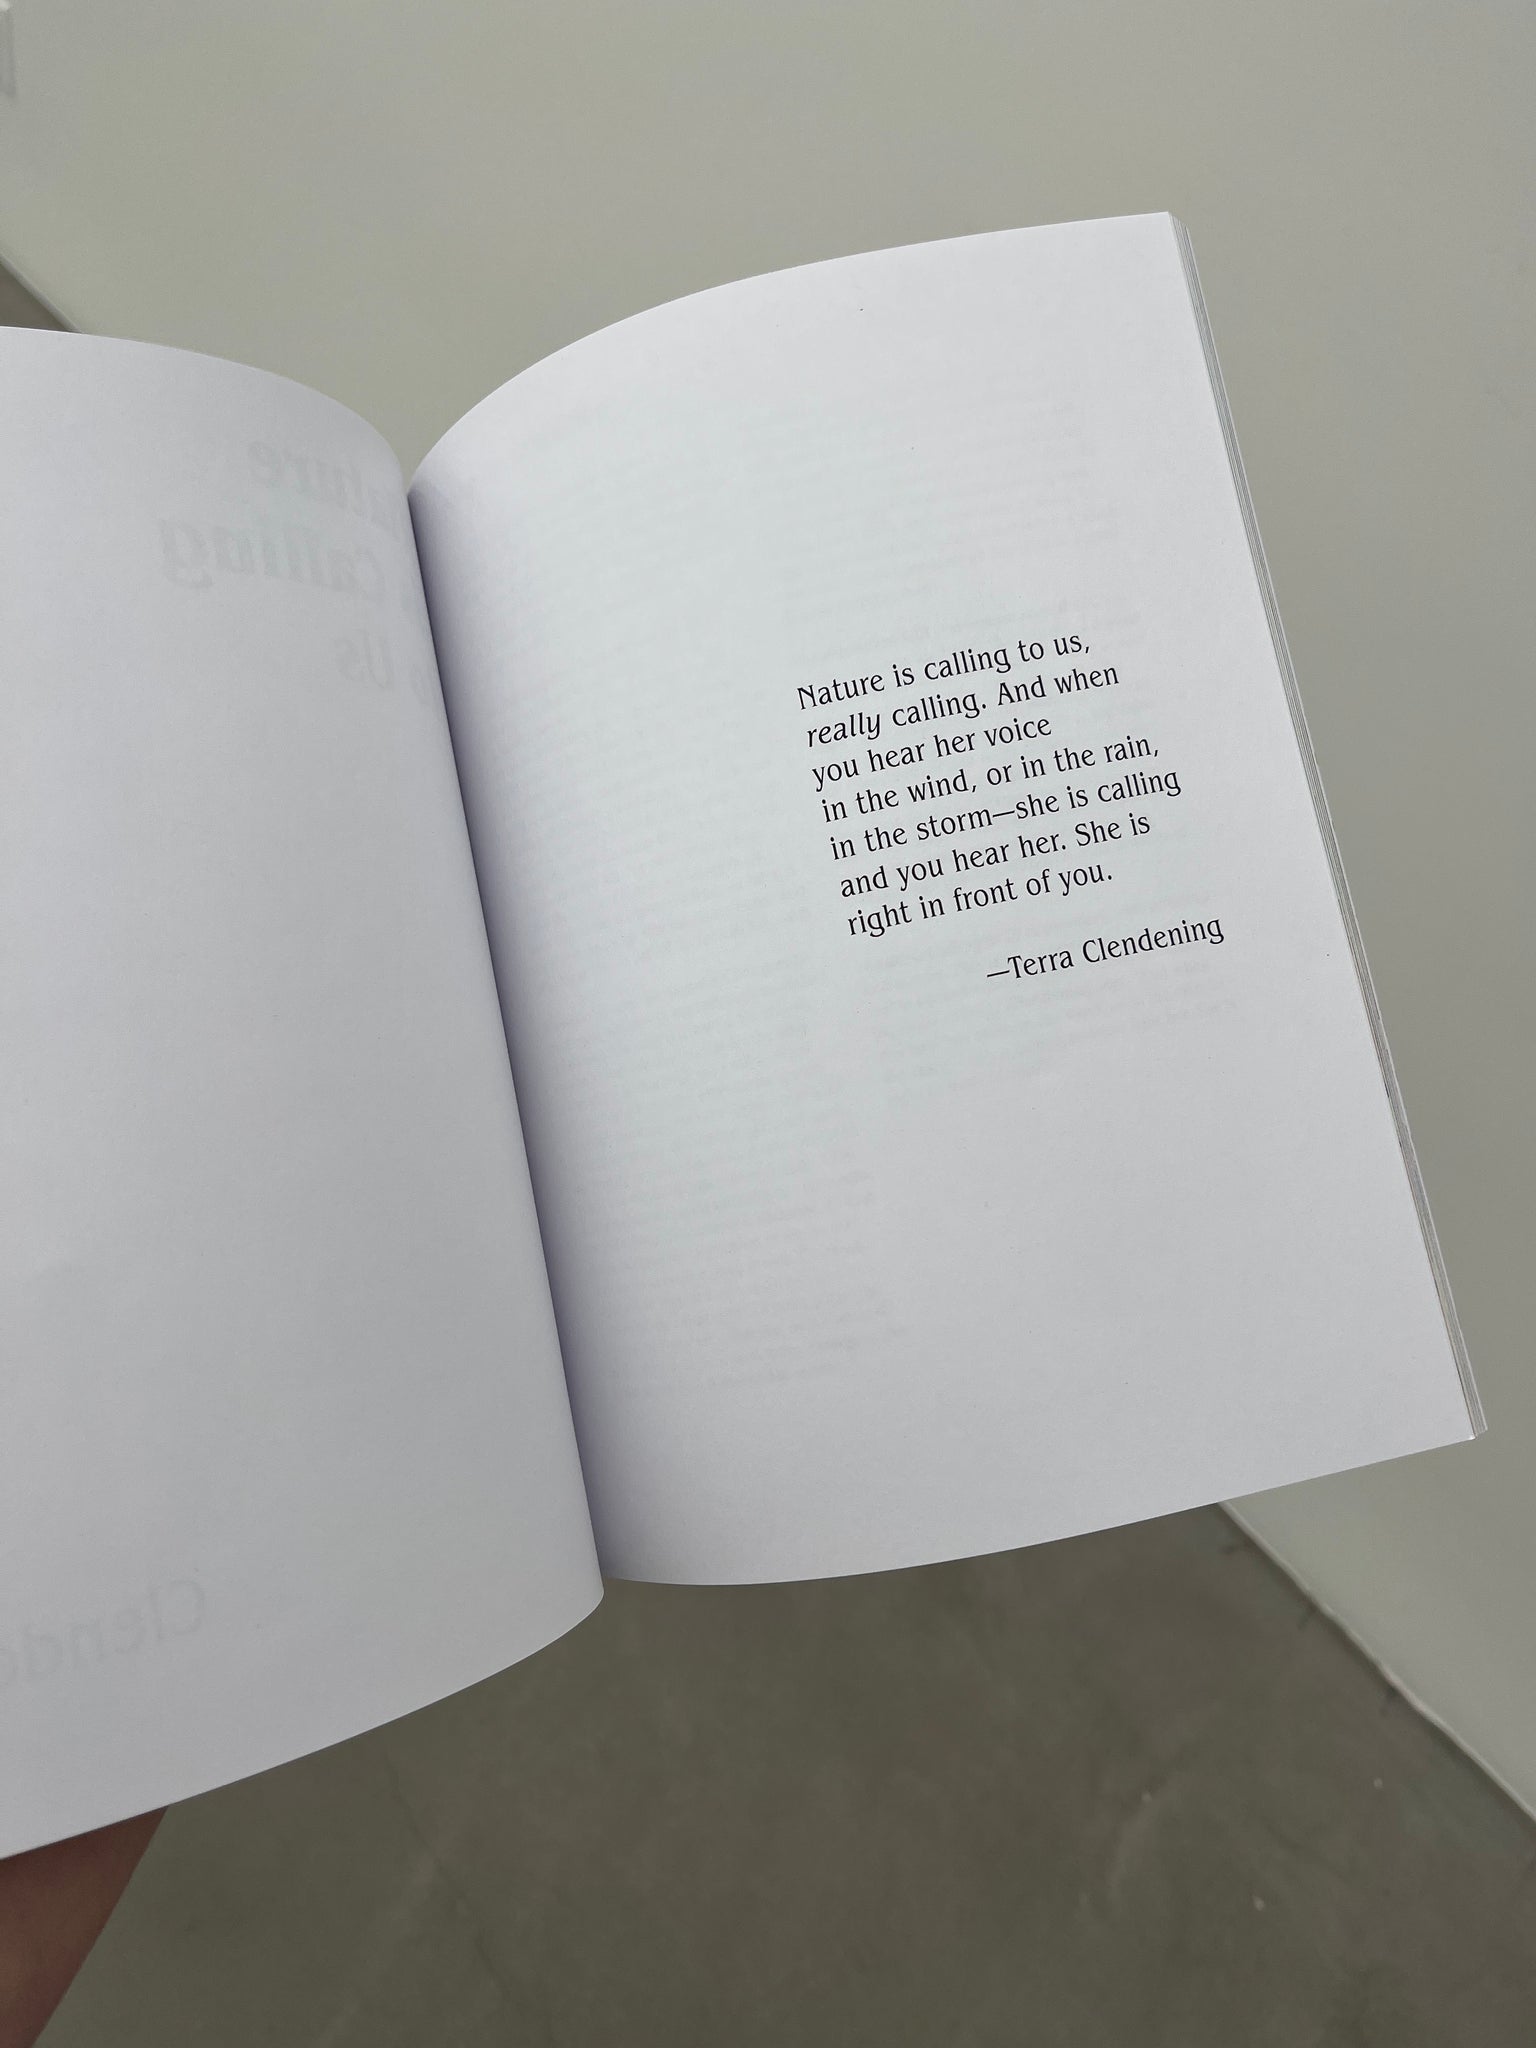 Nature is calling to us,
really calling. And when
you hear her voice
in the wind, or in the rain,
in the storm—she is calling
and you hear her. She is
right in front of you.
—Terra Clendening